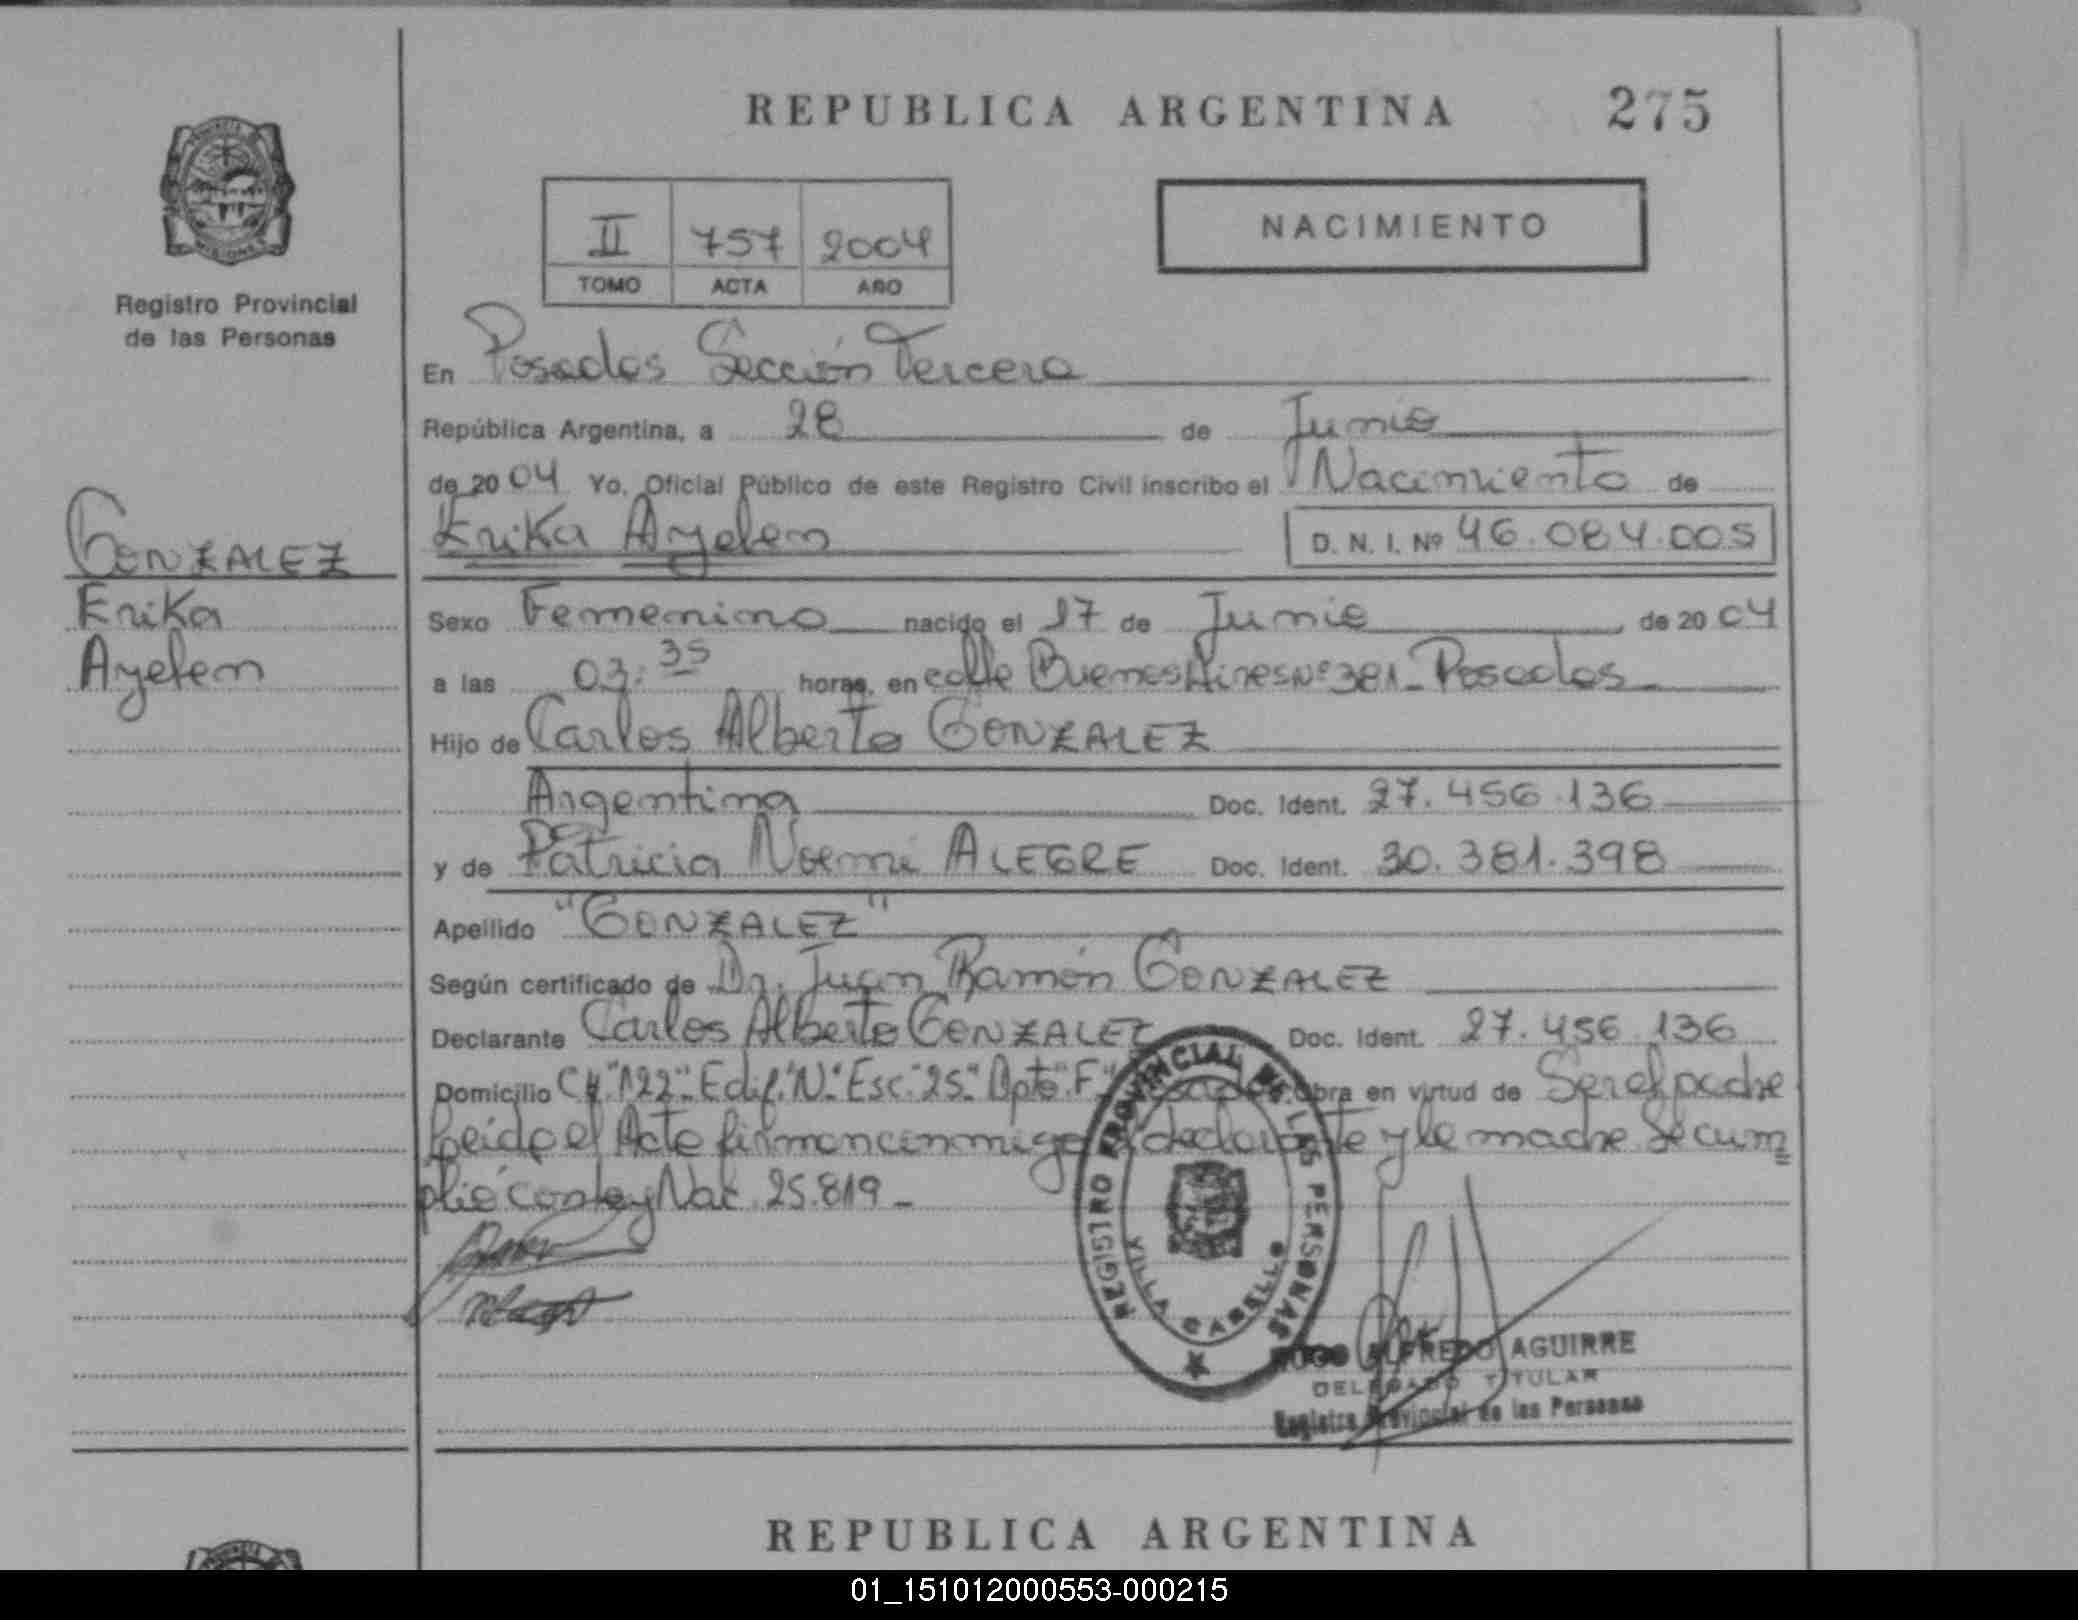 REPUBLICA ARGENTINA 275
PROVINCIA
MISIONES
Registro Provincial
de las Personas
II 757 2004
TOMO ACTA AÑO
NACIMIENTO
En Posadas Sección Tercera
República Argentina, a 28 de Junio
de 2004 Yo, Oficial Público de este Registro Civil inscribo el Nacimiento de
Erika Ayelem
D. N. I. Nº 46.084.005
GONZALEZ
Erika
Ayelem
Sexo Femenino nacido el 17 de Junio de 2004
a las 03:35 horas, en calle Buenos Aires Nº 381 - Posadas
Hijo de Carlos Alberto GONZALEZ
Argentina Doc. Ident. 27.456.136
y de Patricia Noemi ALEGRE Doc. Ident. 30.381.398
Apellido "GONZALEZ"
Según certificado de Dr. Juan Ramón GONZALEZ
Declarante Carlos Alberto GONZALEZ Doc. Ident. 27.456.136
Domicilio CH."122" Edif. "N" Esc. "25" Dpto "F" Posadas Obra en virtud de Ser el padre
Leido el Acta firman conmigo el declarante y la madre. Se cum
plió con Ley Nac. 25.819 -
REGISTRO PROVINCIAL DE LAS PERSONAS
VILLA CABELLO
HUGO ALFREDO AGUIRRE
DELEGADO TITULAR
Registro Provincial de las Personas
REPUBLICA ARGENTINA
01_151012000553-000215